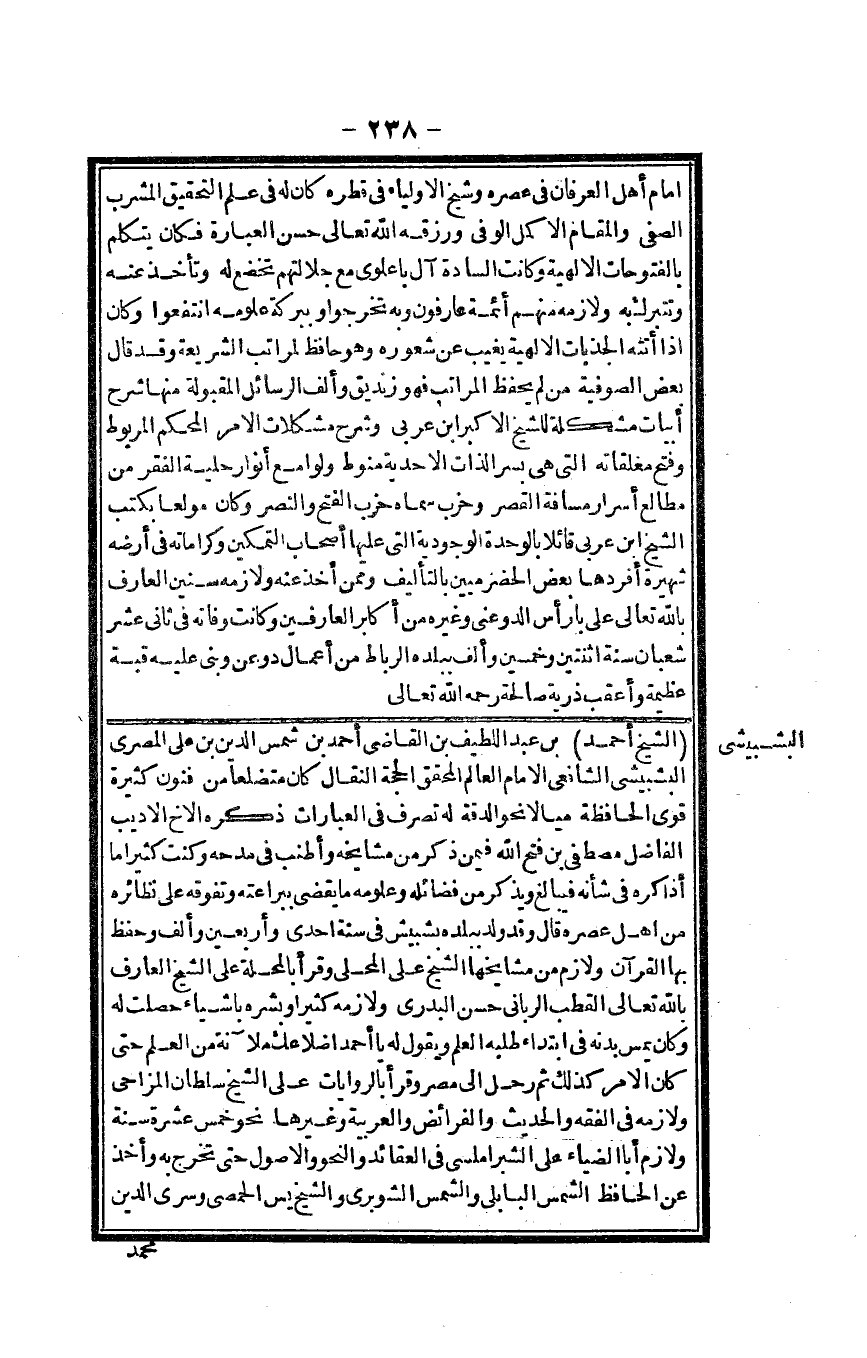 - ٢٣٨ -
امام أهل العرفان فى عصره وشيخ الاولياء فى قطره كان له فى علم التحقيق المشرب
الصفى والمقام الاكمل الوفى ورزقه الله تعالى حسن العبارة فكان يتكلم
بالفتوحات الالهية وكانت السادة آل باعلوى مع جلالتهم تخضع له وتأخذ عنه
وتتبرك به ولازمه منهم أئمة عارفون وبه تخرجوا وببركة علومه انتفعوا وكان
اذا أتته الجذبات الالهية يغيب عن شعوره وهو حافظ لمراتب الشريعة وقد قال
بعض الصوفية من لم يحفظ المراتب فهو زنديق وألف الرسائل المقبولة منها شرح
أبيات مشكلة للشيخ الاكبر ابن عربى وشرح مشكلات الامر المحكم المربوط
وفتح مغلقاته التى هى بسر الذات الاحدية منوط ولوامع أنوار حلية الفقر من
مطالع أسرار مسافة القصر وحزب سماه حزب الفتح والنصر وكان مولعا بكتب
الشيخ ابن عربى قائلا بالوحدة الوجودية التى عليها أصحاب التمكين وكراماته فى أرضه
شهيرة أفردها بعض الحضرميين بالتأليف وممن أخذ عنه ولازمه سنين العارف
بالله تعالى على بارأس الدوعنى وغيره من أكابر العارفين وكانت وفاته فى ثانى عشر
شعبان سنة اثنتين وخمسين وألف ببلده الرباط من أعمال دوعن وبنى عليه قبة
عظيمة وأعقب ذرية صالحة رحمه الله تعالى
البشبيشى
(الشيخ أحمد) بن عبد اللطيف بن القاضى أحمد بن شمس الدين بن على المصرى
البشبيشى الشافعى الامام العالم المحقق الحجة النقال كان متضلعا من فنون كثيرة
قوى الحافظة ميالا نحو الدقة له تصرف فى العبارات ذكره الاخ الاديب
الفاضل مصطفى بن فتح الله فيمن ذكر من مشايخه وأطنب فى مدحه وكنت كثيرا ما
أذاكره فى شأنه فيبالغ ويذكر من فضائله وعلومه ما يقضى ببراعته وتفوقه على نظائره
من اهل عصره قال وقد ولد ببلده بشبيش فى سنة احدى وأربعين وألف وحفظ
بها القرآن ولازم من مشايخها الشيخ على المحلى وقرأ بالمحلة على الشيخ العارف
بالله تعالى القطب الربانى حسن البدرى ولازمه كثيرا وبشره باشياء حصلت له
وكان يمس بدنه فى ابتداء طلبه العلم ويقول له يا أحمد اضلاعك ملآنة من العلم حتى
كان الامر كذلك ثم رحل الى مصر وقرأ بالروايات على الشيخ سلطان المزاحى
ولازمه فى الفقه والحديث والفرائض والعربية وغيرها نحو خمس عشرة سنة
ولازم أبا الضياء على الشبراملسى فى العقائد والنحو والاصول حتى تخرج به وأخذ
عن الحافظ الشمس البابلى والشمس الشوبرى والشيخ يس الحمصى وسرى الدين
محمد